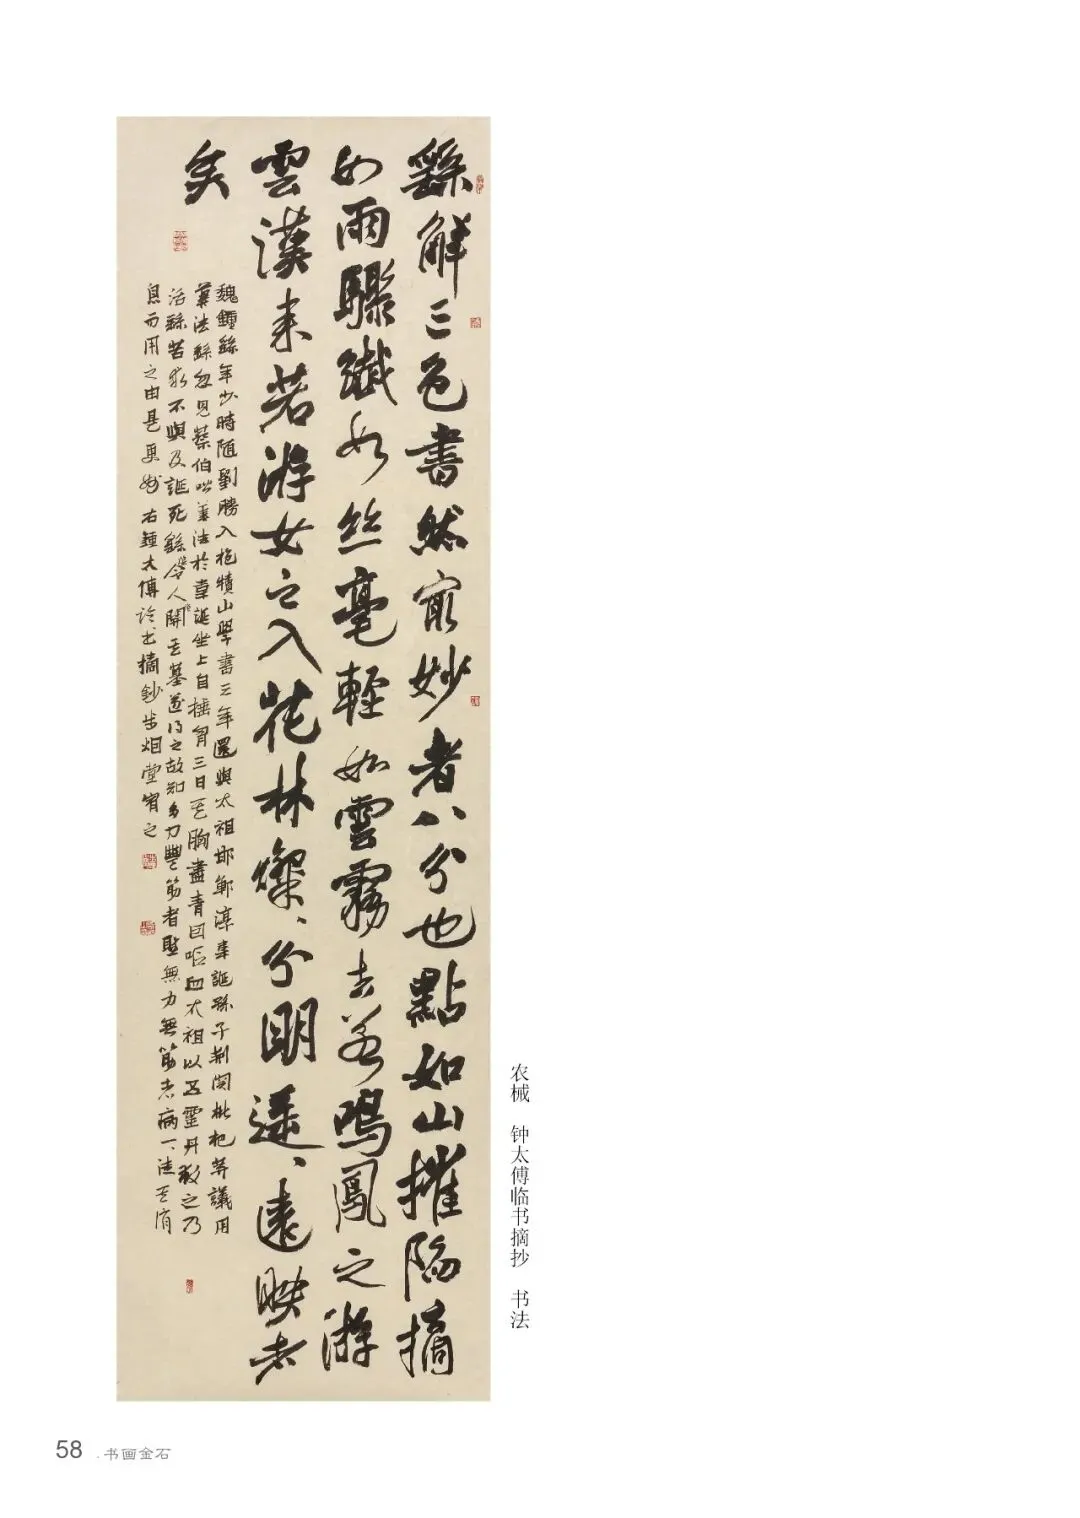 繇解三色書然冣妙者八分也點如山摧陷摘
如雨驟纖如絲毫輕如雲霧去若鳴鳳之游
雲漢来若游女之入花林燦、分明遥、遠映者
矣
魏鍾繇年少時随劉勝入抱犢山學書三年還與太祖邯鄲淳韋誕孫子荆関枇杷等議用
筆法繇忽見蔡伯喈筆法於韋誕坐上自搥胸三日其胸盡青因嘔血太祖以五靈丹救之乃
活繇苦求不與及誕死繇令人開其墓道得之故知多力豐筋者聖無力無筋者病一、従其消
息而用之由是更妙 右鍾太傅論書摘鈔 烟堂
农械 钟太傅临书摘抄 书法
58 .书画金石